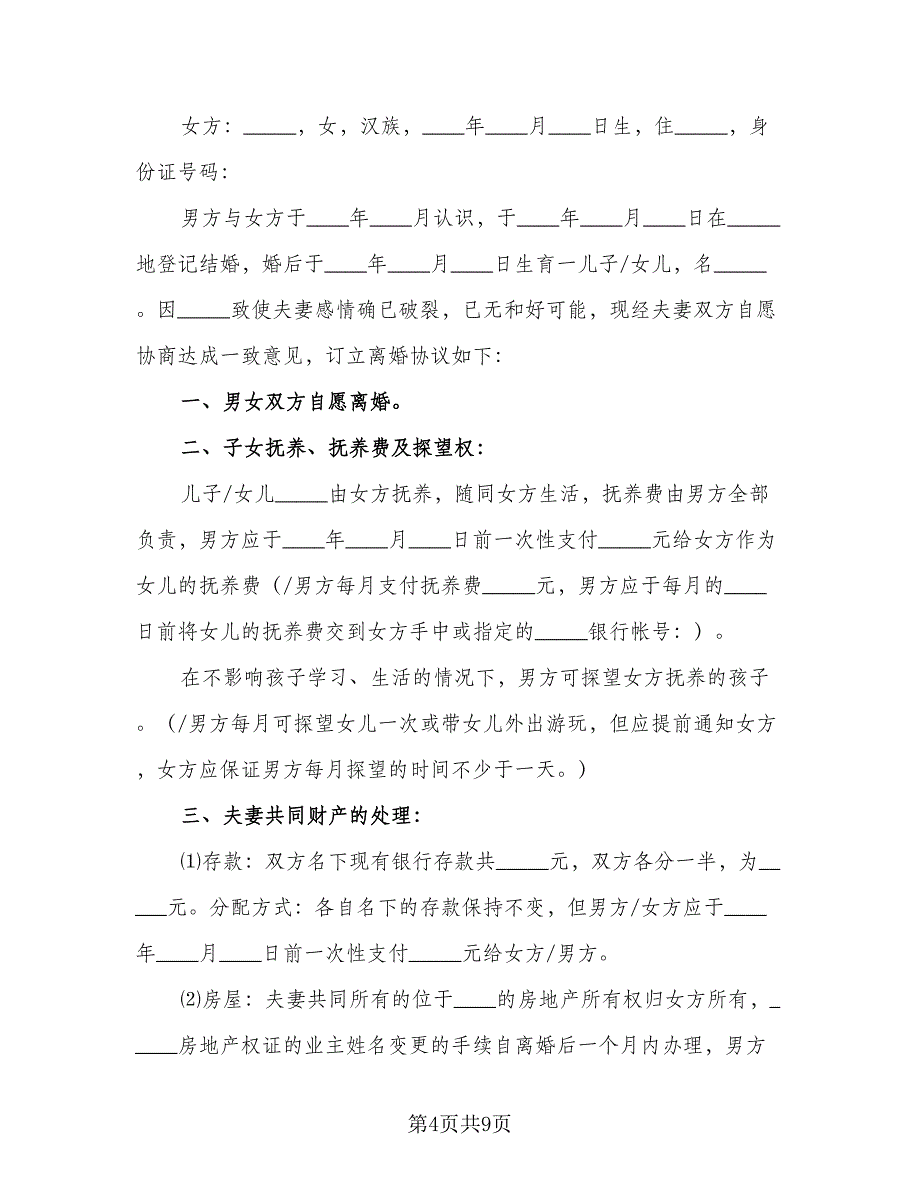 女方：_____，女，汉族，____年____月____日生，住_____，身
份证号码：
男方与女方于____年____月认识，于____年____月____日在_____
地登记结婚，婚后于____年____月____日生育一儿子/女儿，名_____
。因_____致使夫妻感情确已破裂，已无和好可能，现经夫妻双方自愿
协商达成一致意见，订立离婚协议如下：
一、男女双方自愿离婚。
二、子女抚养、抚养费及探望权：
儿子/女儿_____由女方抚养，随同女方生活，抚养费由男方全部
负责，男方应于____年____月____日前一次性支付_____元给女方作为
女儿的抚养费（/男方每月支付抚养费_____元，男方应于每月的____
日前将女儿的抚养费交到女方手中或指定的_____银行帐号：）。
在不影响孩子学习、生活的情况下，男方可探望女方抚养的孩子
。（/男方每月可探望女儿一次或带女儿外出游玩，但应提前通知女方
，女方应保证男方每月探望的时间不少于一天。）
三、夫妻共同财产的处理：
⑴存款：双方名下现有银行存款共_____元，双方各分一半，为__
___元。分配方式：各自名下的存款保持不变，但男方/女方应于____
年____月____日前一次性支付_____元给女方/男方。
⑵房屋：夫妻共同所有的位于____的房地产所有权归女方所有，_
____房地产权证的业主姓名变更的手续自离婚后一个月内办理，男方
第4页共9页